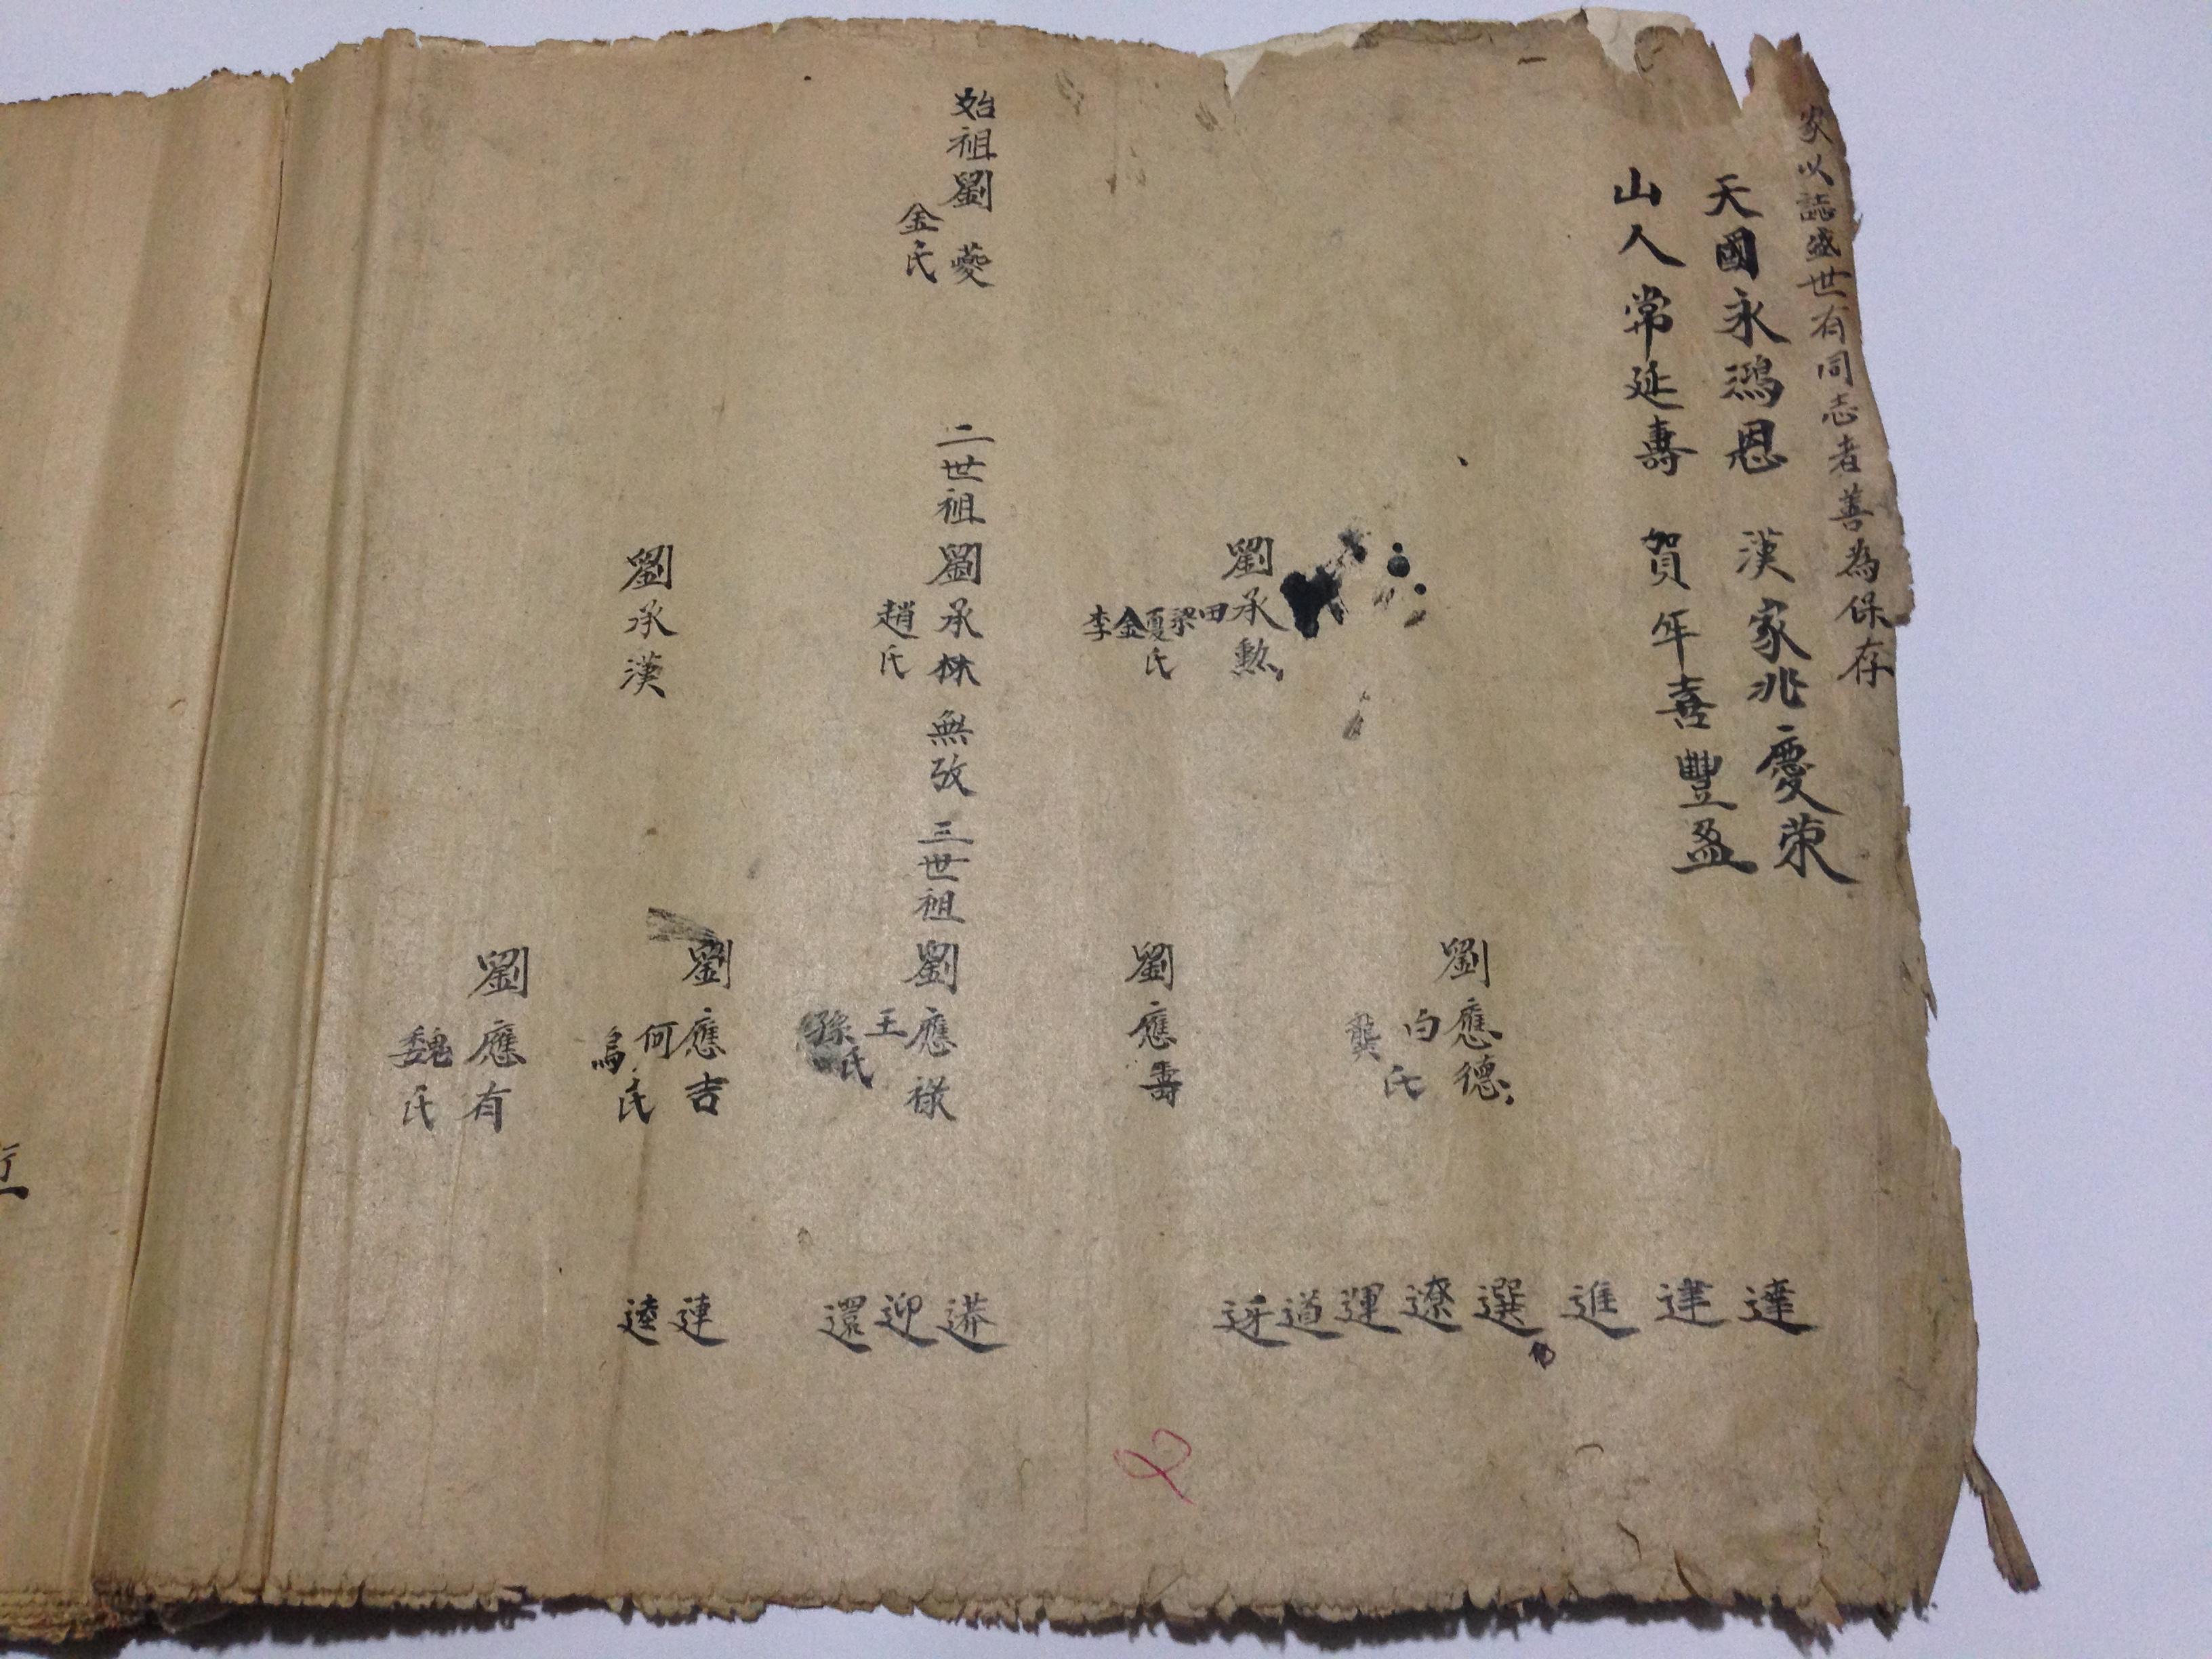 家以誌盛世有同志者善為保存
天國永鴻恩 漢家兆慶荣
山人常延壽 賀年喜豐盈
始祖劉
金氏
劉承勲
田梁夏金李氏
二世祖劉承林 無攷
趙氏
劉承漢
劉應德
白龔氏
劉應壽
三世祖劉應祿
王孫氏
劉應吉
何烏氏
劉應有
魏氏
達 進 選 遼 運 道
迎 還
連 逵